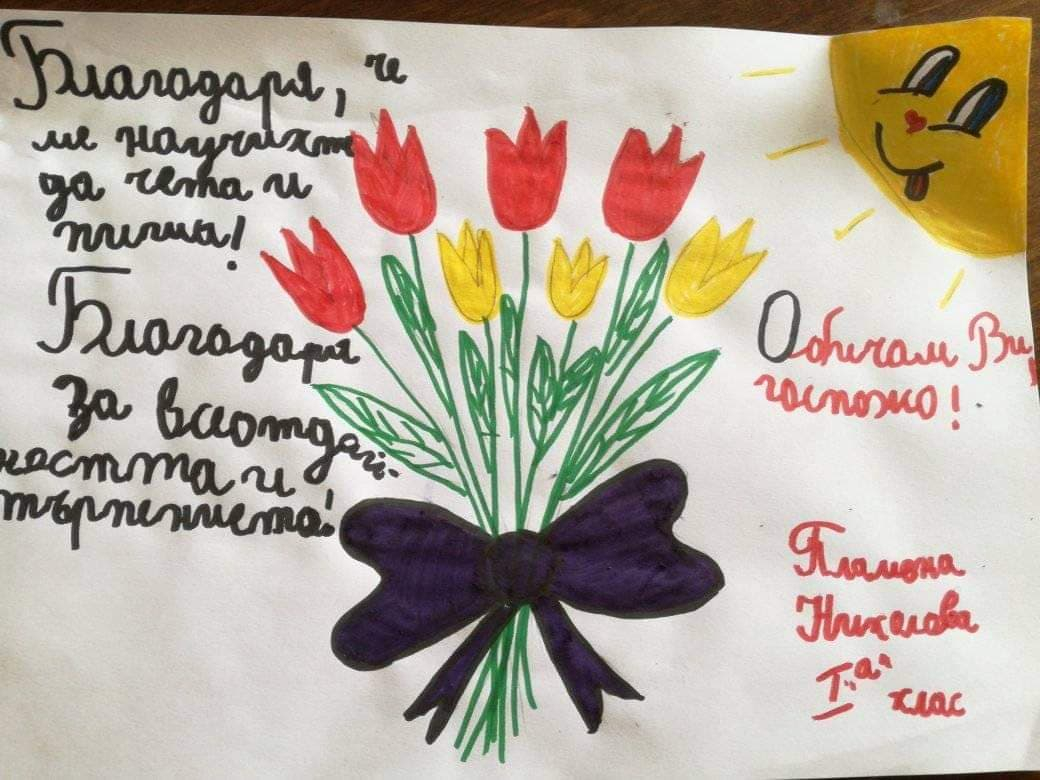 Благодаря, че
ме научихте
да чета и
пиша!
Благодаря
за всеотдай-
ността и
търпениета!
Ообичам Ви,
госпожо!
Пламена
Николова
I "а"
клас